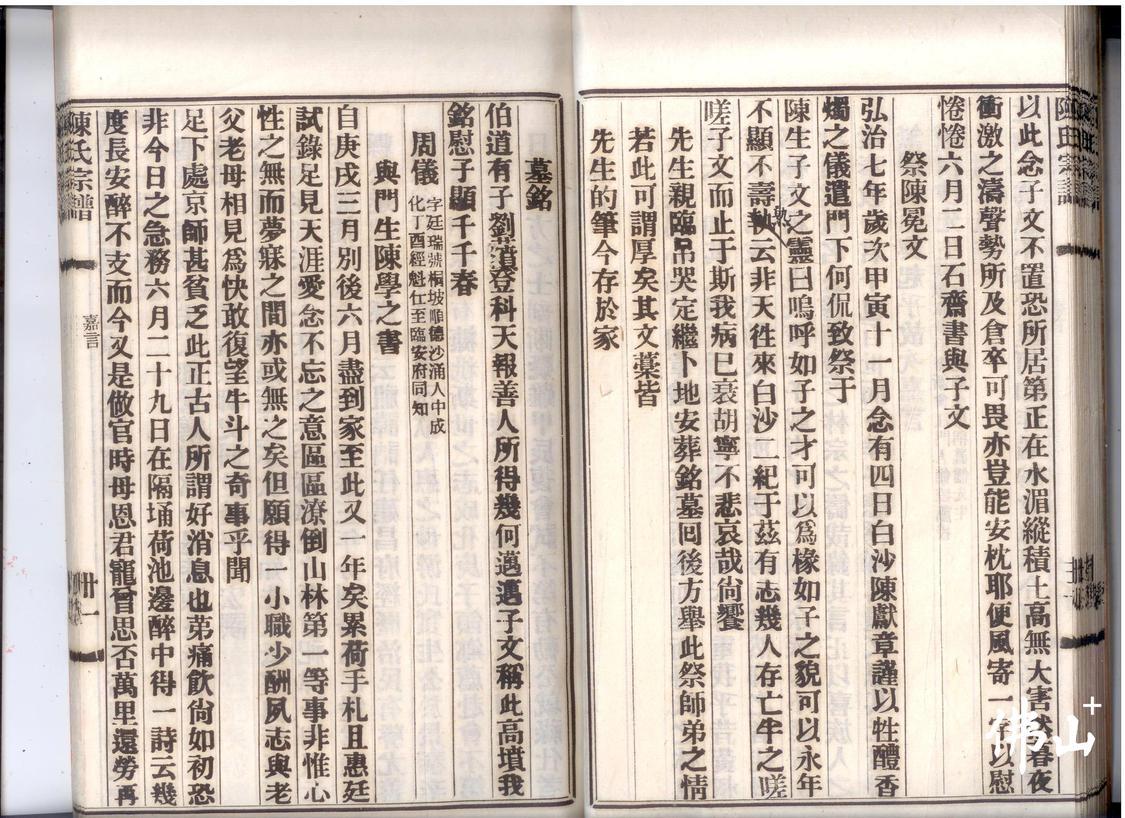 以此念子文不置恐所居第正在水湄縱積土高無大害然春夜
衝激之濤聲勢所及倉卒可畏亦豈能安枕耶便風寄一以慰
惓惓六月二日石齋書與子文
祭陳冕文
弘治七年歲次甲寅十一月念有四日白沙陳獻章謹以牲醴香
燭之儀遣門下何侃致祭于
陳生子文之靈曰嗚呼如子之才可以爲椽如子之貌可以永年
不顯不壽孰云非天徃來白沙二紀于茲有志幾人存亡半之嗟
嗟子文而止于斯我病巳衰胡寧不悲哀哉尙饗
先生親臨吊哭定繼卜地安葬銘墓囘後方舉此祭師弟之情
若此可謂厚矣其文藁皆
先生的筆今存於家
陳氏宗譜
墓銘
伯道有子劉蕡登科天報善人所得幾何邁邁子文稱此高墳我
銘慰子顯千千春
周儀
字廷瑞號桐坡順德沙涌人中成
化丁酉經魁仕至臨安府同知
與門生陳學之書
自庚戌三月別後六月盡到家至此又一年矣累荷手札且惠廷
試錄足見天涯愛念不忘之意區區潦倒山林第一等事非惟心
性之無而夢寐之間亦或無之矣但願得一小職少酬夙志與老
父老母相見爲快敢復望牛斗之奇事乎聞
足下處京師甚貧乏此正古人所謂好消息也苐痛飲尙如初恐
非今日之急務六月二十九日在隔埇荷池邊醉中得一詩云幾
度長安醉不支而今又是倣官時母恩君寵曾思否萬里還勞再
陳氏宗譜
嘉言
卅一
佛山+